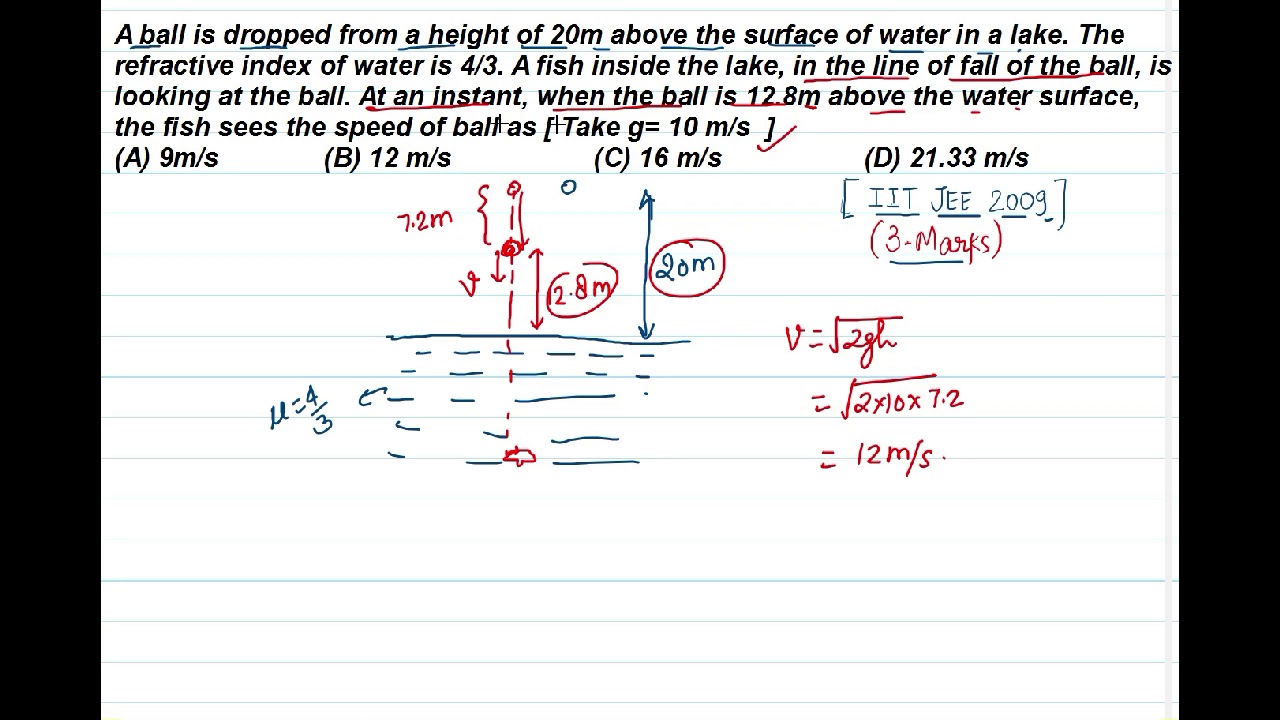 A ball is dropped from a height of 20m above the surface of water in a lake. The
refractive index of water is 4/3. A fish inside the lake, in the line of fall of the ball, is
looking at the ball. At an instant, when the ball is 12.8m above the water surface,
the fish sees the speed of ball as [ Take g= 10 m/s ]
(A) 9m/s (B) 12 m/s (C) 16 m/s (D) 21.33 m/s
[ IIT JEE 2009 ]
(3-Marks)
7.2m
v
12.8m
20m
v = √2gh
= √2×10×7.2
= 12 m/s.
μ = 4/3